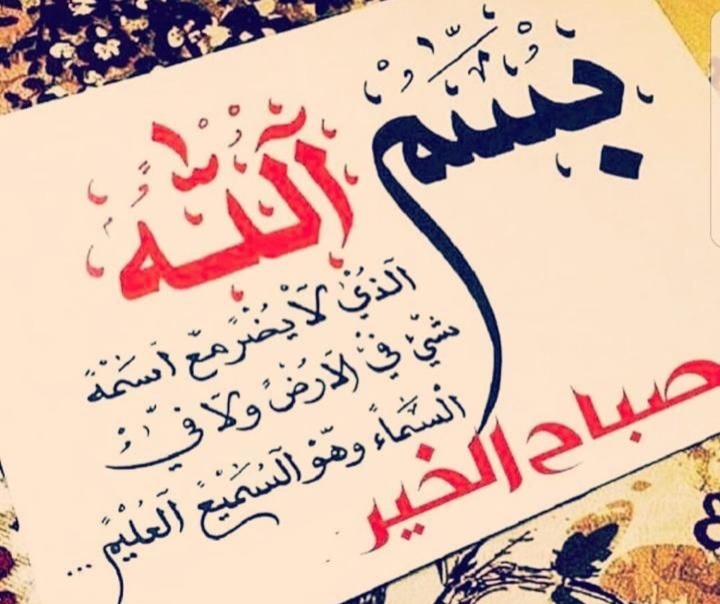 بسم الله
الذي لا يضر مع اسمه
شيء في الارض ولا في
السماء وهو السميع العليم...
صباح الخير